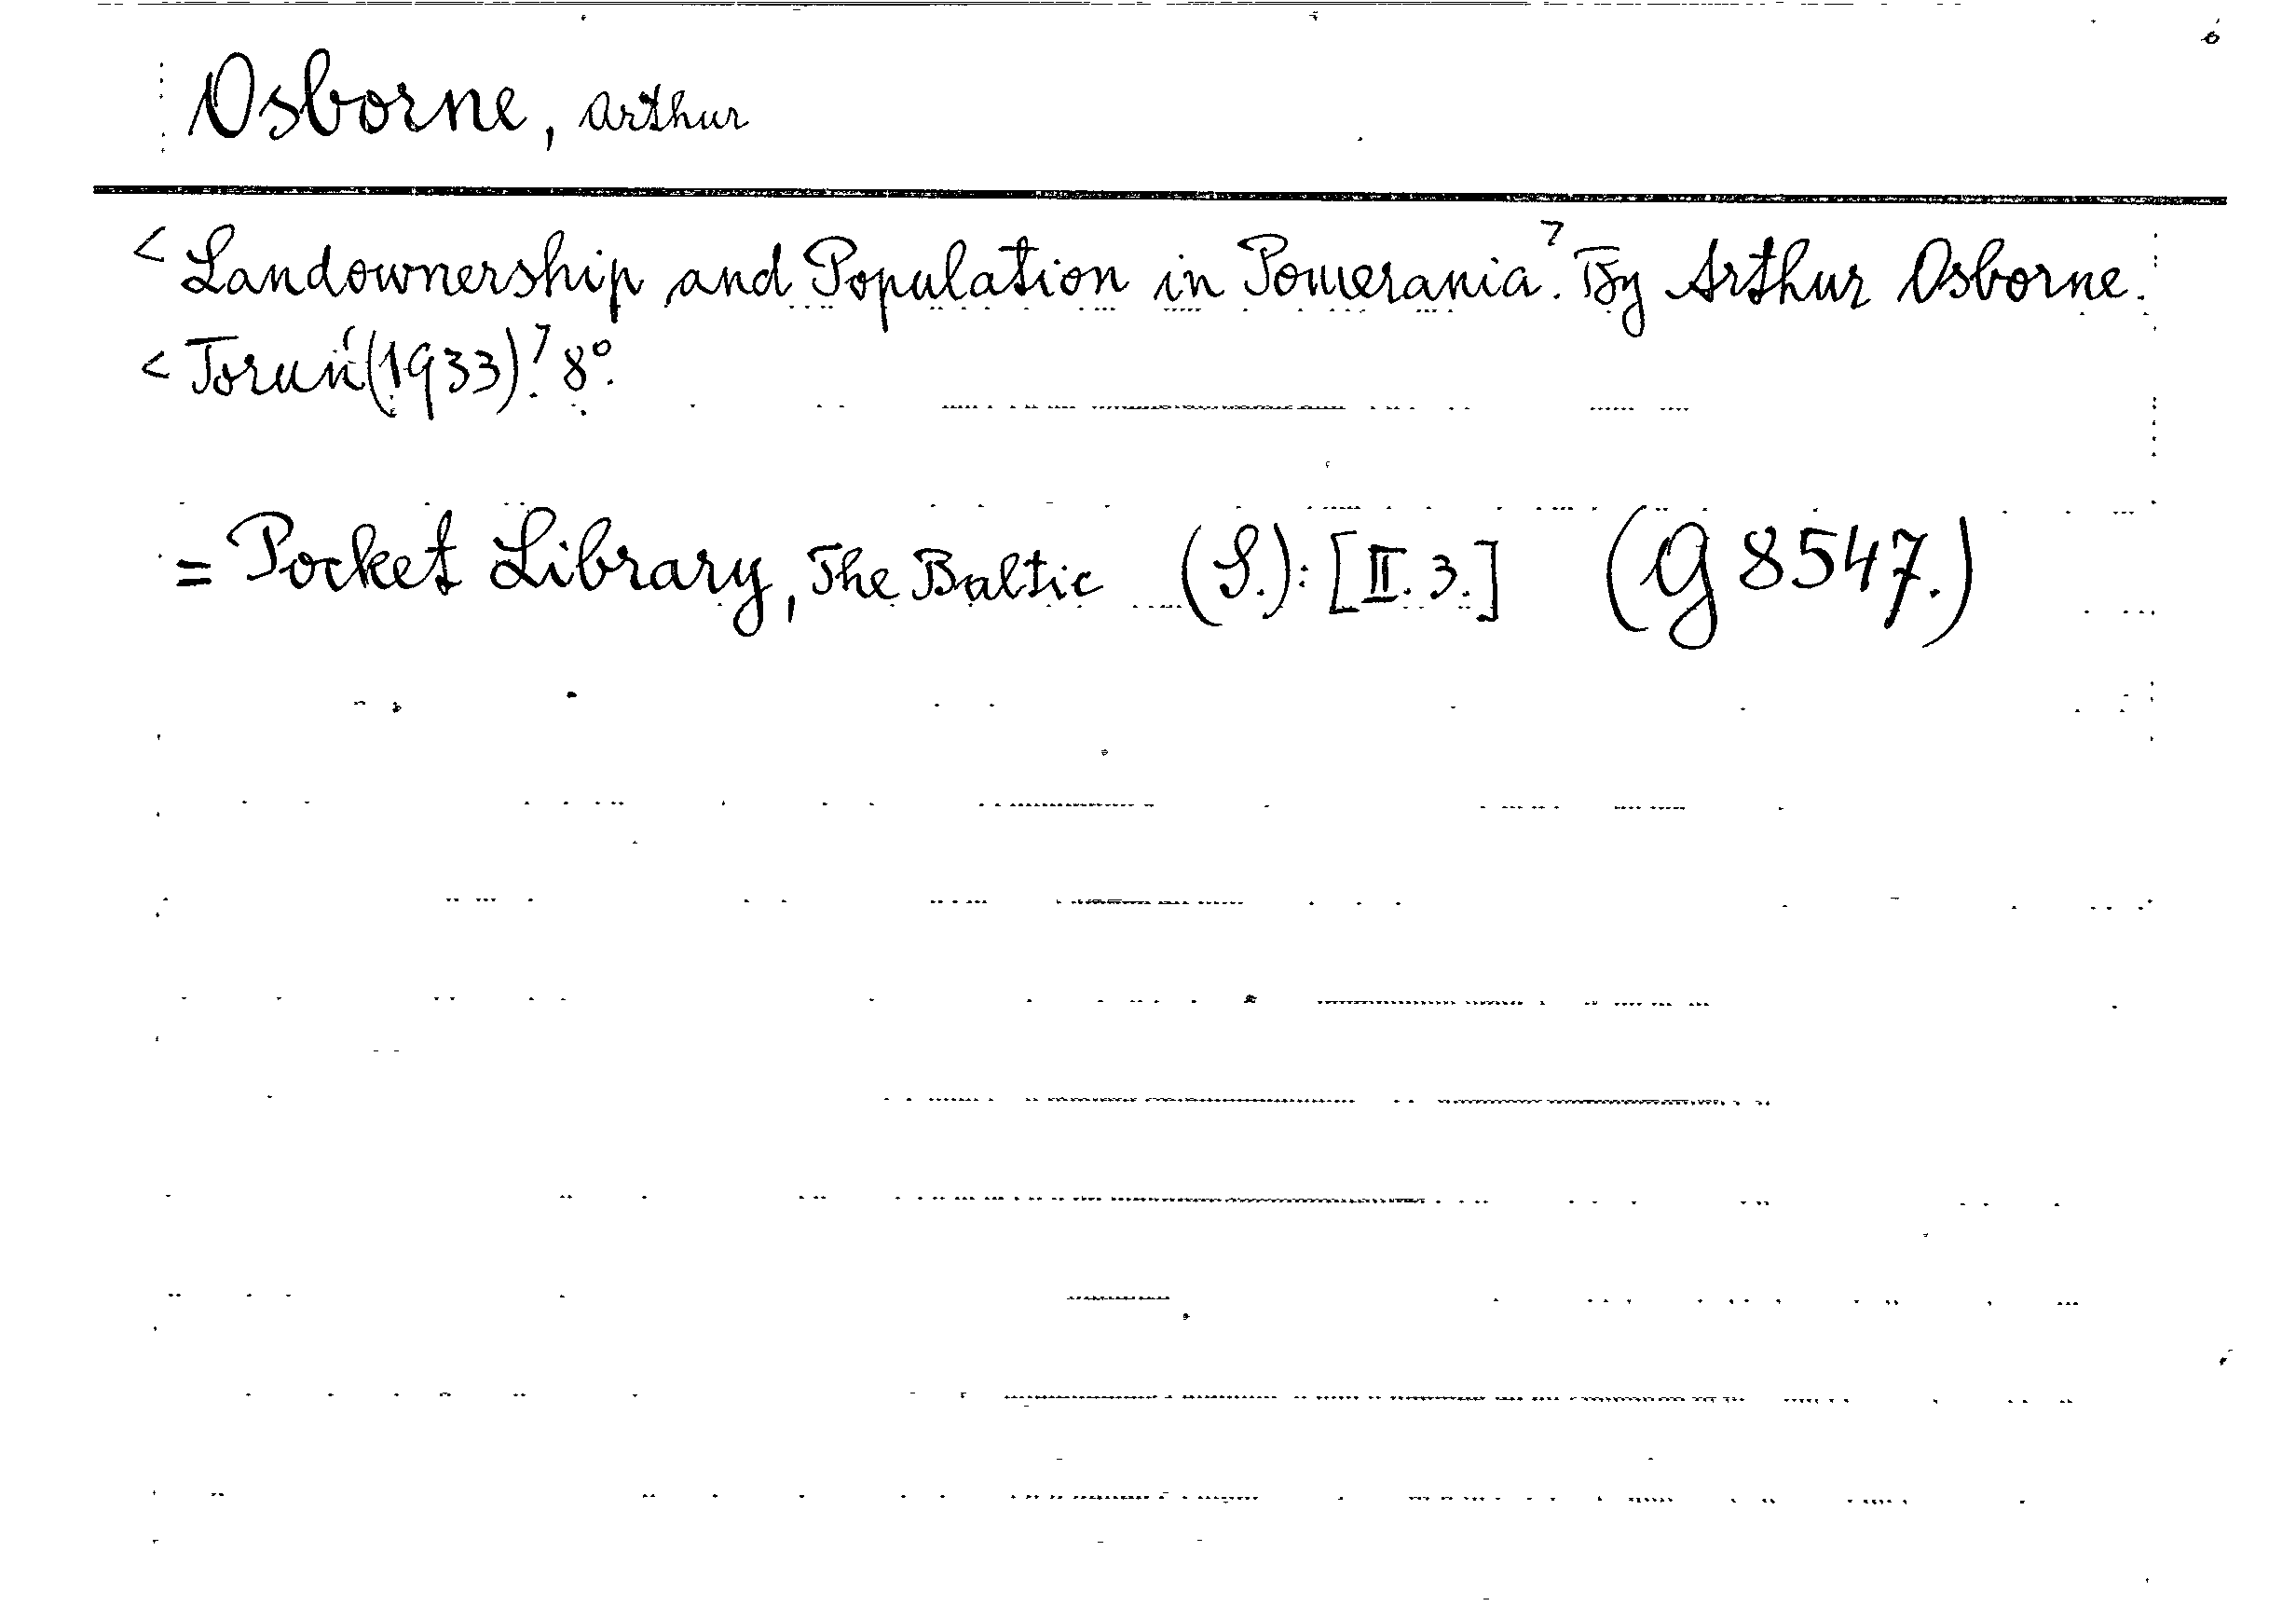 Osborne, Arthur
< Landownership and Population in Pomerania.⁊ By Arthur Osborne.
< Toruń (1933).⁊ 8°.
= Pocket Library, The Baltic (S.): [II. 3.] (G 8547.)